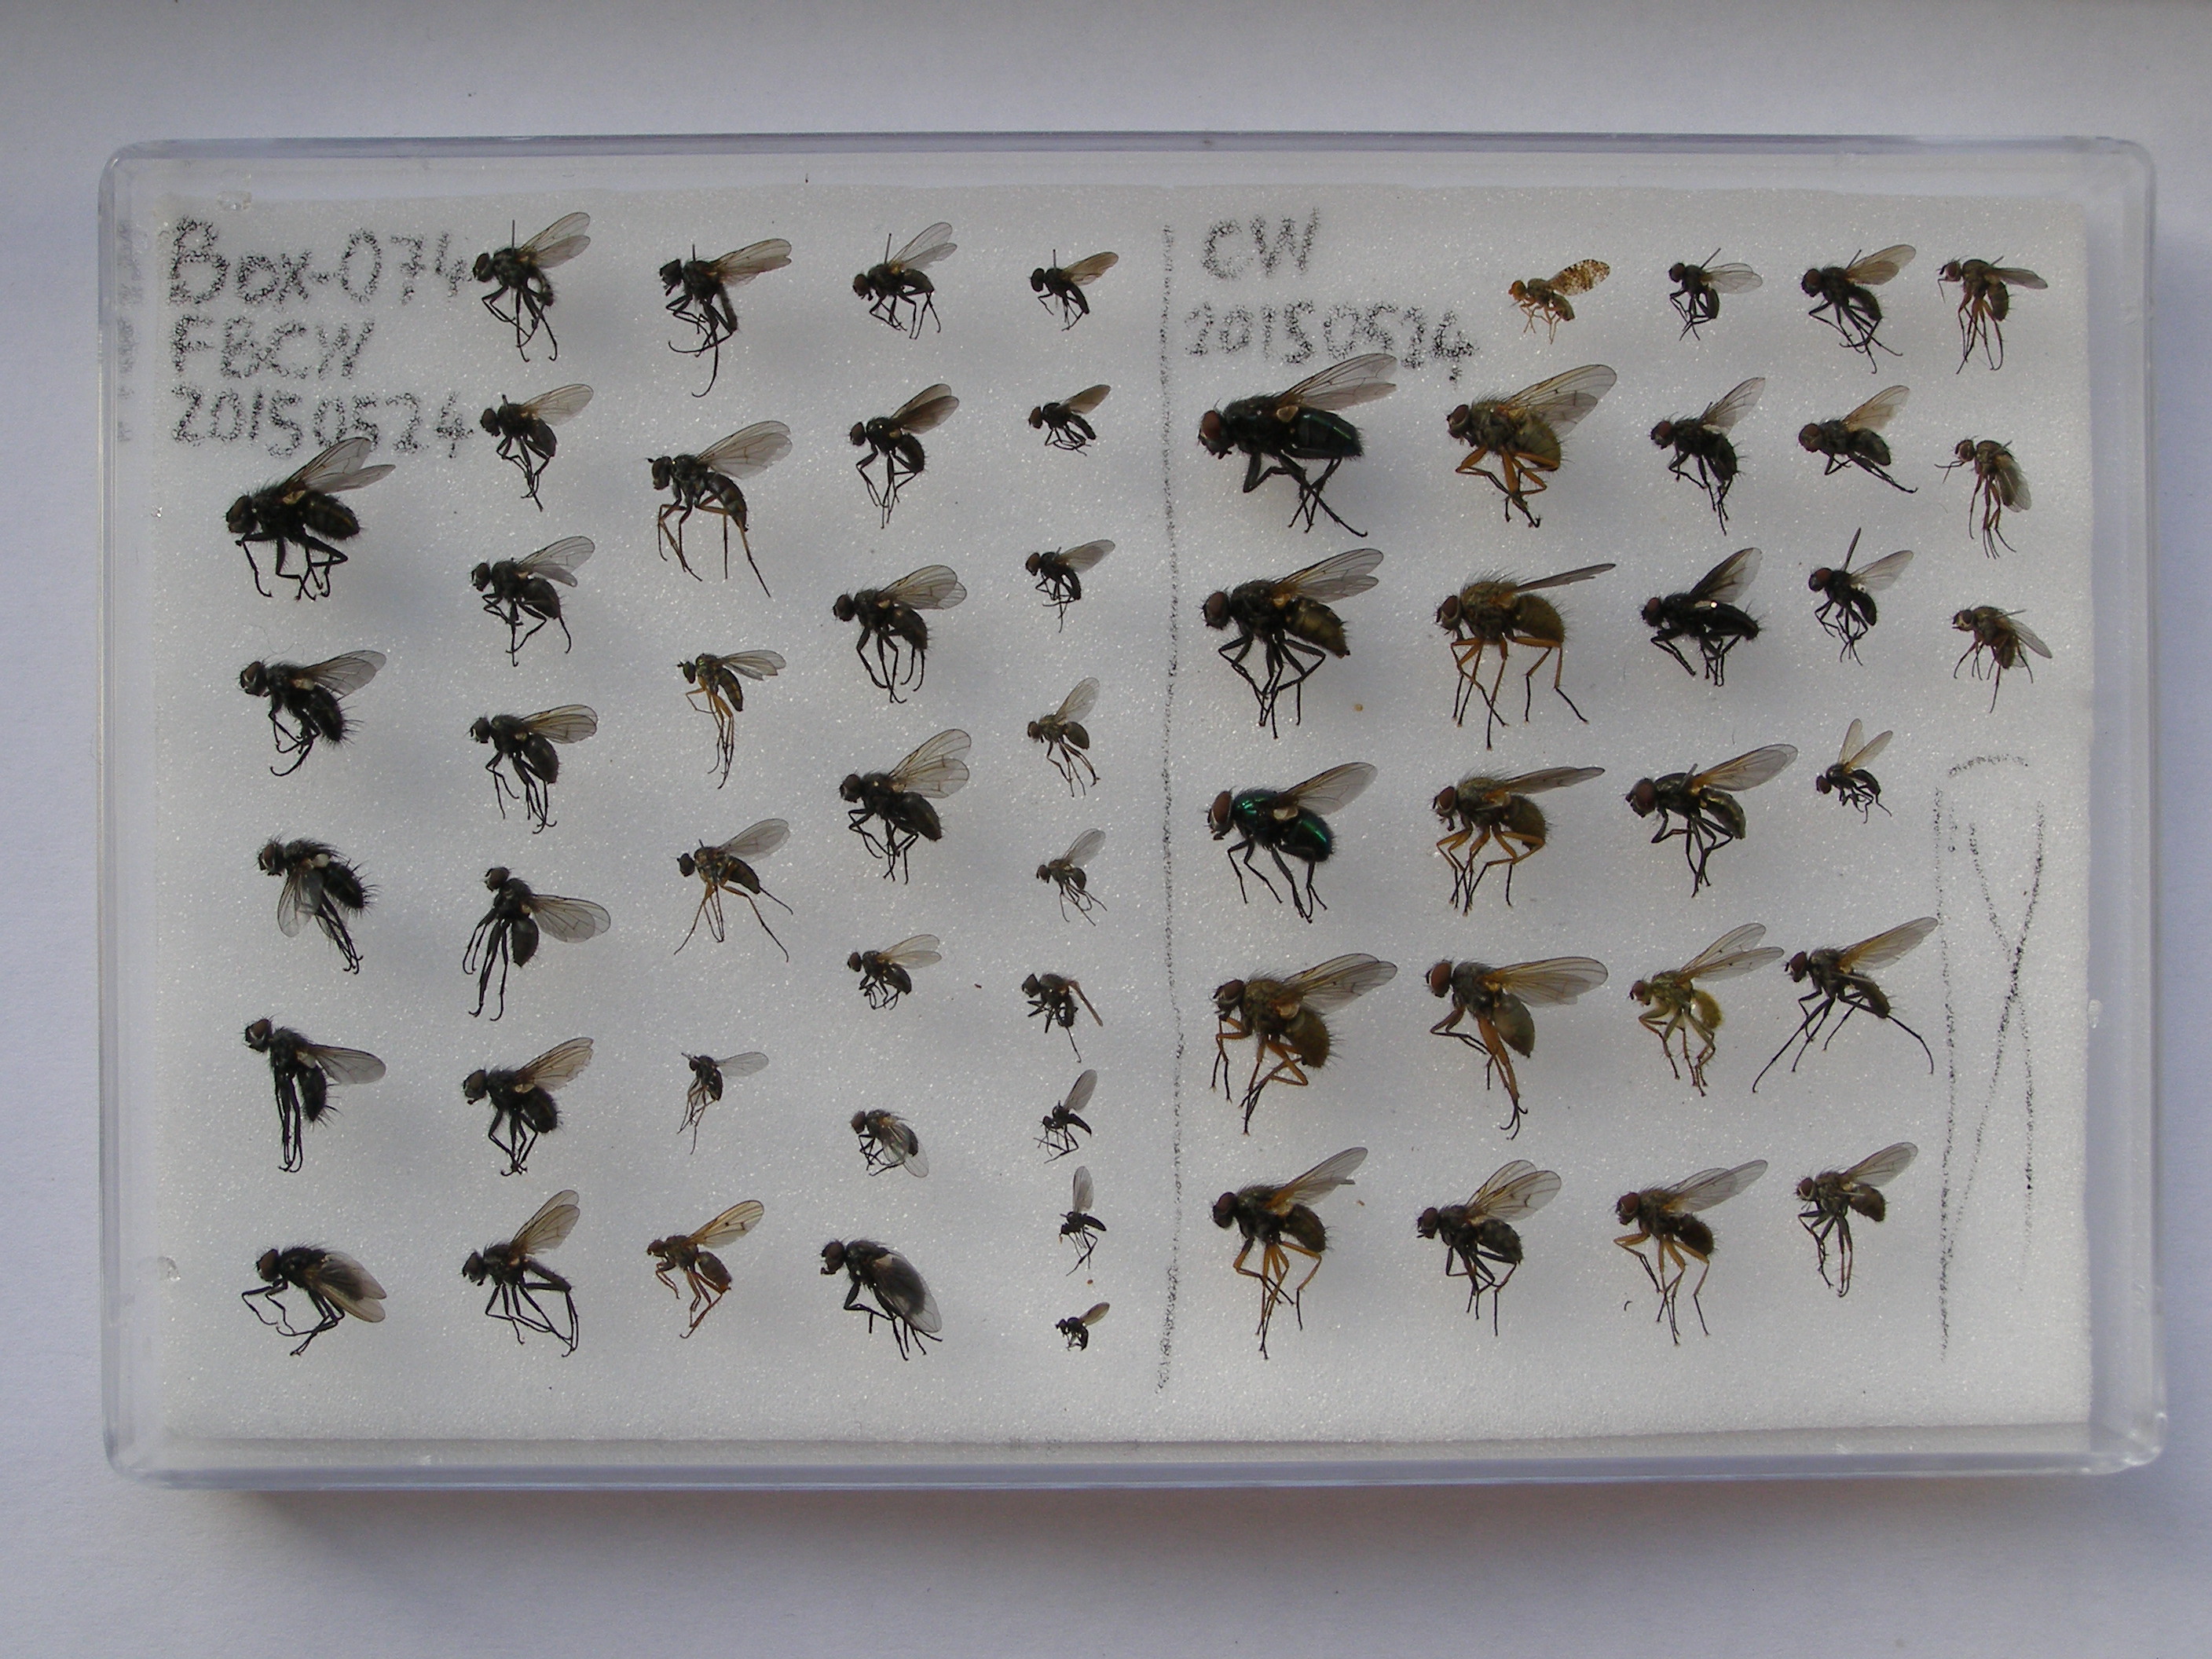 Box-074
FBCW
20150524
CW
20150524